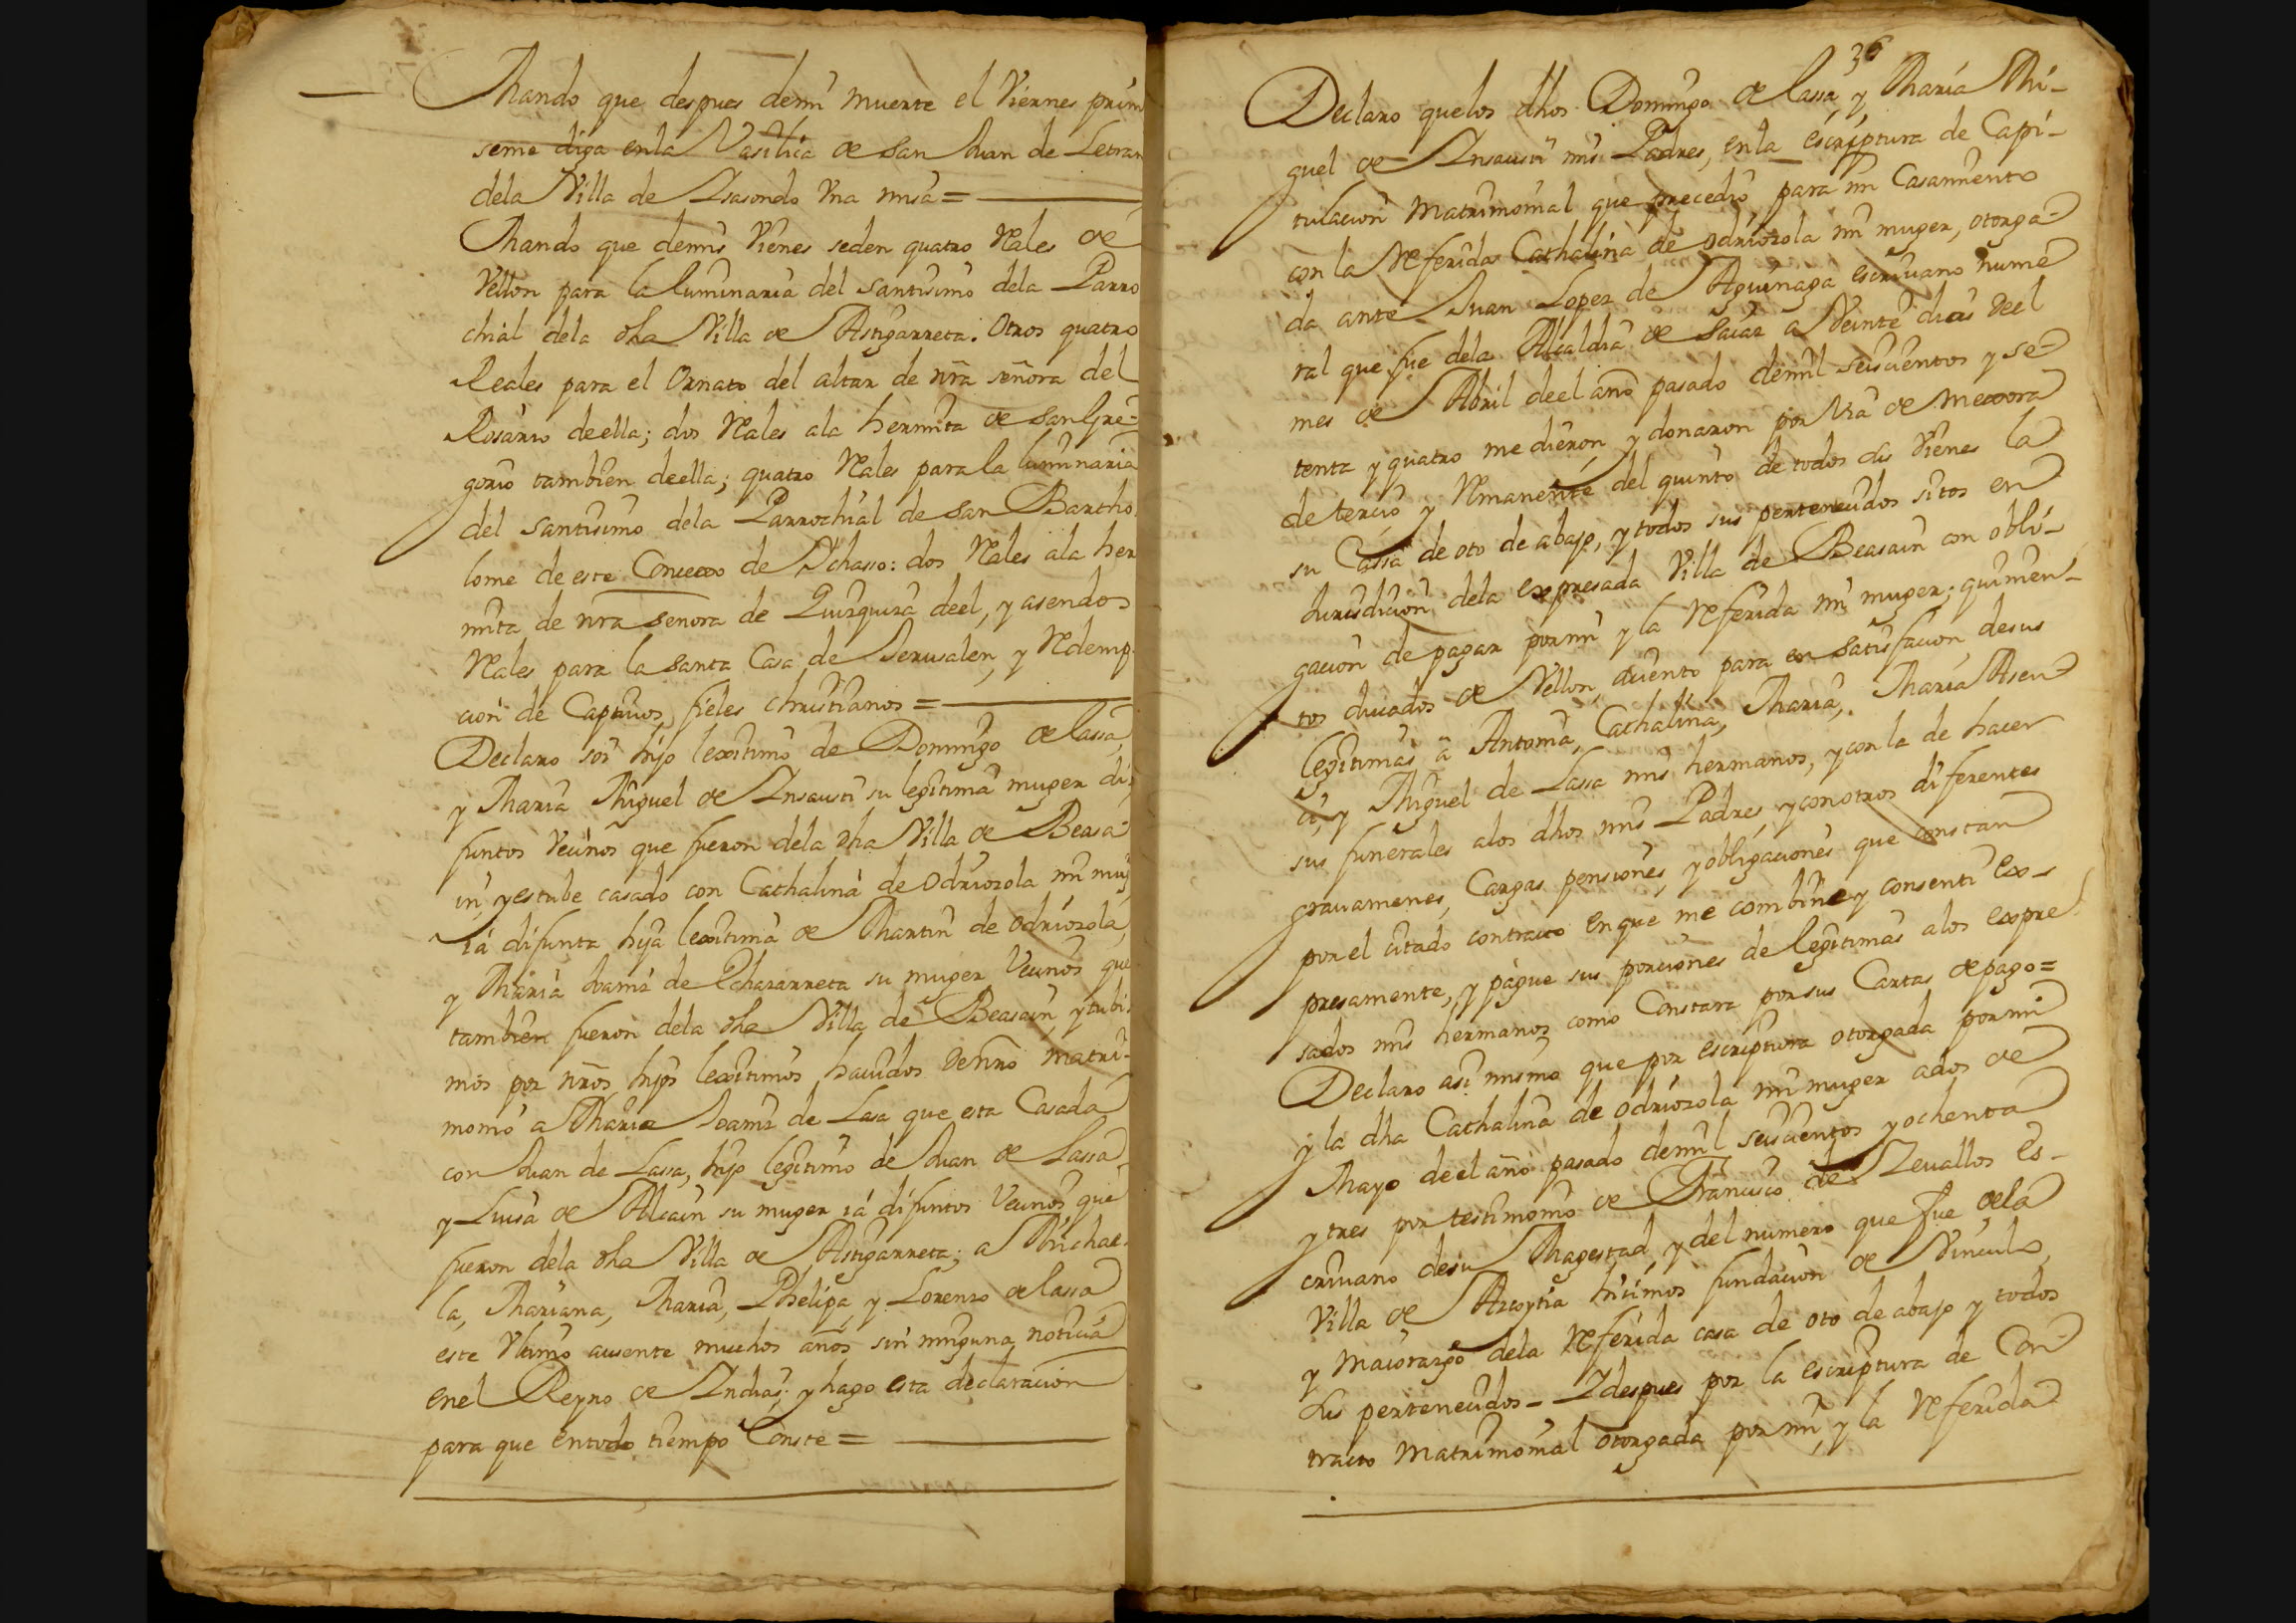 Mando que despues demi muerte el Viernes prim
seme diga enla Vasilica de San Juan de Letran
dela Villa de Isasondo Vna misa =
Mando que demis Vienes seden quatro Rales de
Vellon para la luminaria del santisimo dela Parro
chial dela dha Villa de Astigarreta. Otros quatro
Reales para el Ornato del altar de nra señora del
Rosario deella; dos Rales ala hermita de San Gre-
gorio tambien deella; quatro Rales para la luminaria
del santisimo dela Parrochial de San Bartho
lome de este Concexo de Ychasso: dos Rales ala her
mita de nra Senora de Quizquiza deel, y asendos
Rales para la santa Casa de Jerusalen, y Redemp
cion de Captivos, fieles christianos =
Declaro soi hijo lexitimo de Domingo de lassa,
y Maria Miguel de Insausti su legitima muger di-
funtos Vecinos que fueron dela dha Villa de Beasa-
in, y estube casado con Cathalina de Odriozola mi mug
ia difunta hija lexitima de Martin de Odriozola,
y Maria Joamiz de Echazarreta su muger Vecinos que
tambien fueron dela dha Villa de Beasain, y tubi-
mos por nros hijos lexitimos havidos de nro matri-
monio a Maria Joamiz de Lasa que esta Casada
con Juan de Lassa, hijo legitimo de Juan de Lassa
y Luisa de Alcain su muger ia difuntos Vecinos que
fueron dela dha Villa de Astigarreta; a Michae-
la, Mariana, Maria, Phelipa, y Lorenzo de lassa
este Vltimo ausente muchos años sin ninguna noticia
enel Reyno de Indias; y hago esta declaracion
para que entodo tiempo Conste =
36
Declaro quelos dhos Domingo de lassa, y Maria Mi-
guel de Insausti mis Padres, enla escriptura de Capi-
tulacion Matrimonial que precedio para mi Casamiento
con la Referida Cathalina de Odriozola mi muger, otorga-
da ante Juan Lopez de Aguinaga escrivano nume
ral que fue dela Alcaldia de Saiaz a Veinte dias deel
mes de Abril deel año pasado demil seiscientos y se-
tenta y quatro me dieron, y donaron por Via de Mexora
de tercio y Remanente del quinto de todos sus Vienes la
su Cassa de oto de abajo, y todos sus pertenecidos sitos en
Jurisdicion dela expresada Villa de Beasain con obli-
gacion de pagar por mi y la Referida mi muger; quinien-
tos ducados de Vellon, aciento para en satisfacion, desus
legitimas a Antonia, Cathalina, Maria, Maria Asen
cia, y Miguel de Lassa mis hermanos, y con la de hacer
sus funerales alos dhos mis Padres, y conotros diferentes
gravamenes, Cargas, pensiones, y obligaciones que constan
por el citado contracto enque me combine y consenti ex-
presamente, y pague sus porciones de legitimas alos expre
sados mis hermanos como Constara por sus Cartas de pago =
Declaro asi mismo que por escriptura otorgada por mi
y la dha Cathalina de Odriozola mi muger ados de
Mayo deel año pasado demil seiscientos y ochenta
y tres por testimonio de Francisco de Zevallos es-
crivano desu Magestad, y del numero que fue dela
Villa de Azcoytia hicimos fundacion de Vinculo,
y Maiorazgo dela Referida casa de oto de abajo y todos
sus pertenecidos - I despues por la escriptura de Con
tracto Matrimonial otorgada por mi, y la Referida